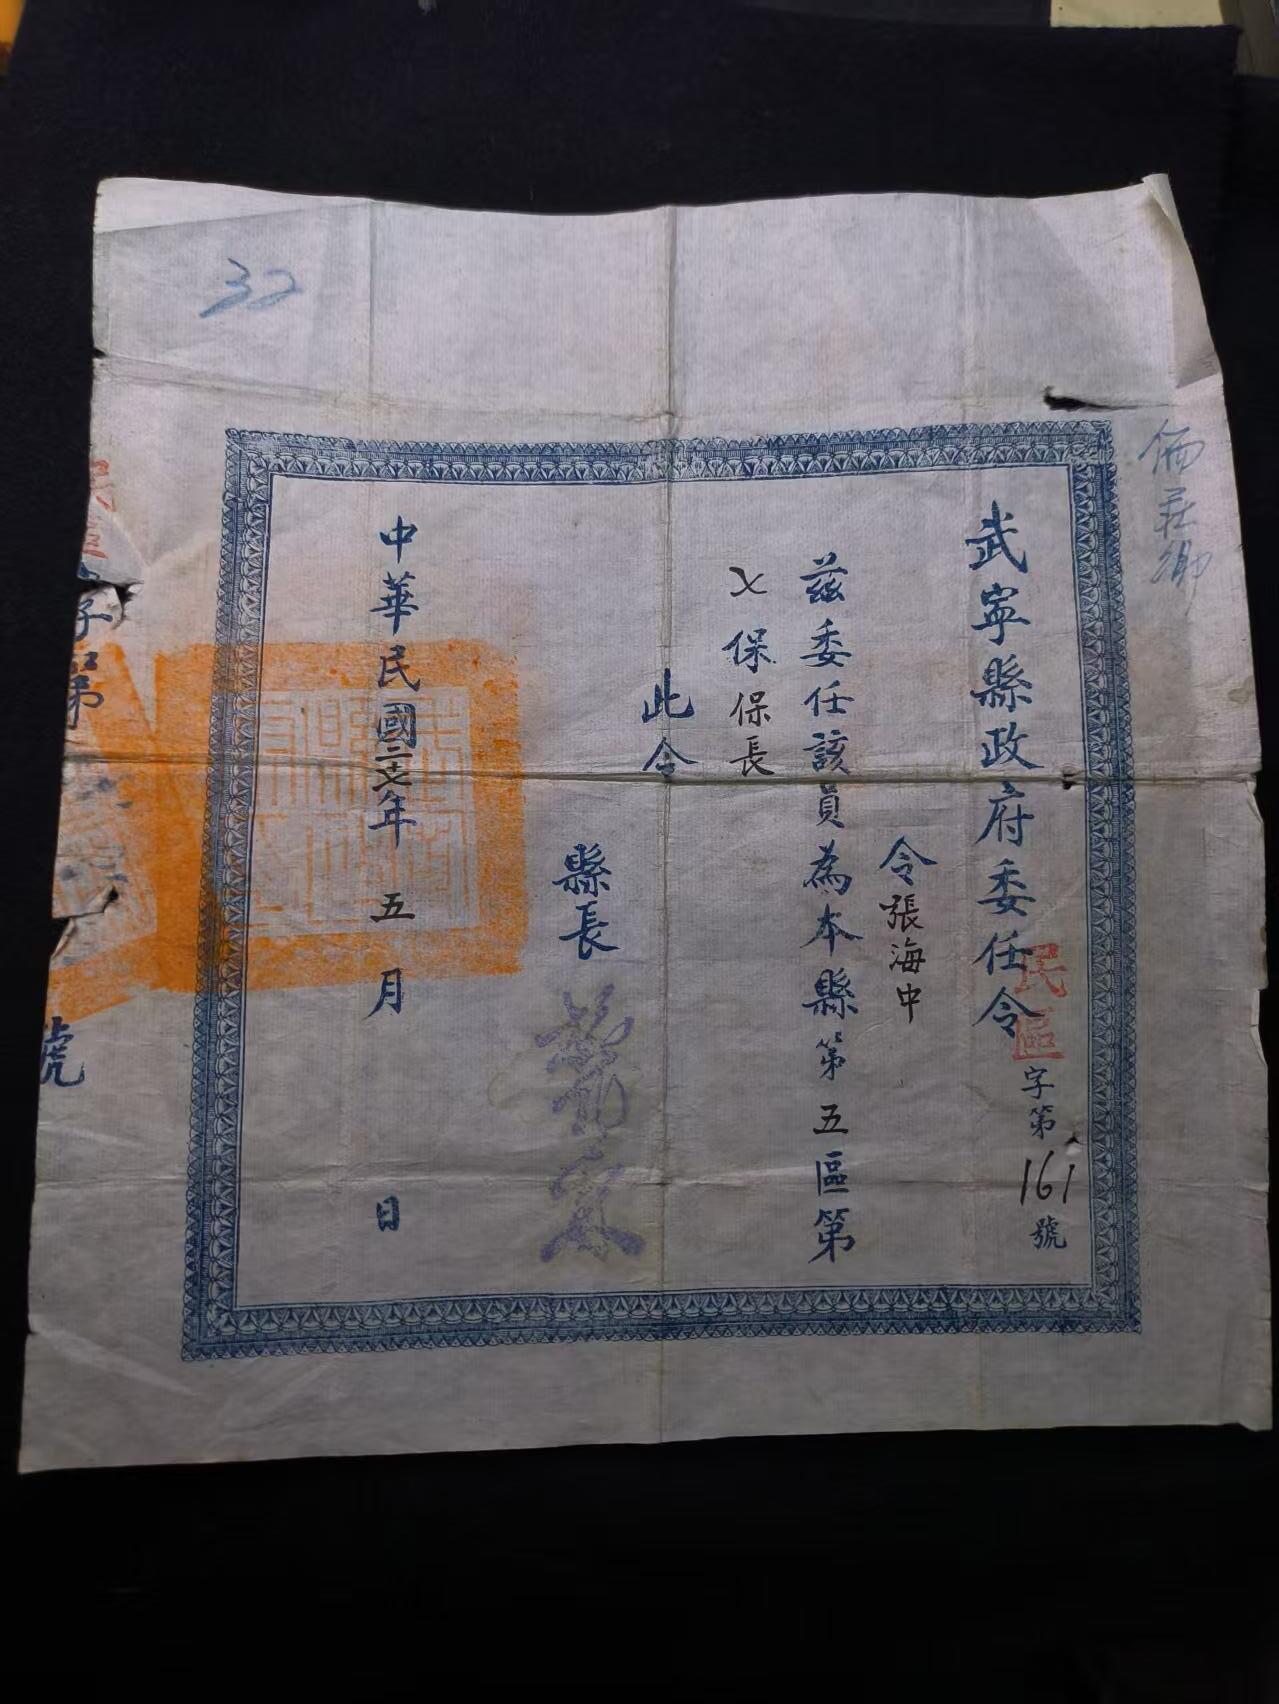 倫莊鄉
武寧縣政府委任令
民區字第161號
令張海中
茲委任該員為本縣第五區第
㐅保保長
此令
縣長
中華民國二七年五月日
32
民區字第
號